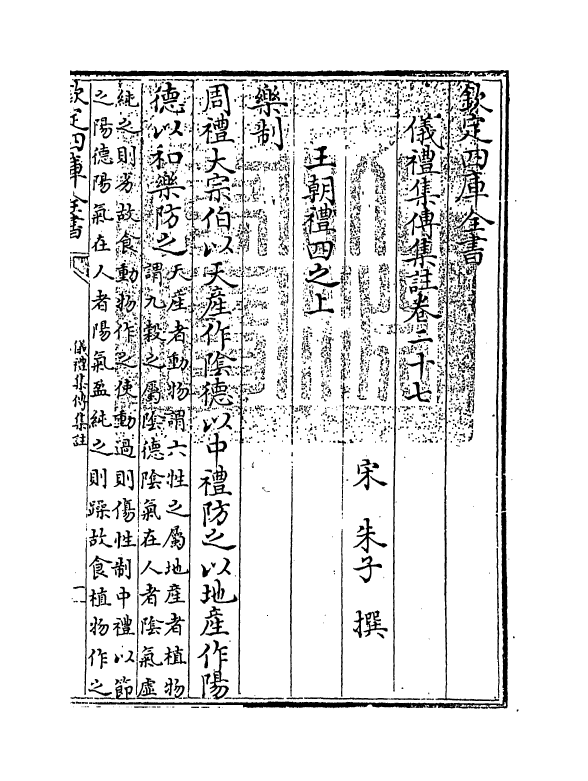 欽定四庫全書
儀禮集傳集註卷二十七
宋 朱子 撰
王朝禮四之上
樂制
周禮大宗伯以天產作陰德以中禮防之以地產作陽
德以和樂防之天產者動物謂六牲之屬地產者植物
謂九穀之屬陰德陰氣在人者陰氣虛
純之則劣故食動物作之使動過則傷性制中禮以節
之陽德陽氣在人者陽氣盈純之則躁故食植物作之
欽定四庫全書
儀禮集傳集註
一